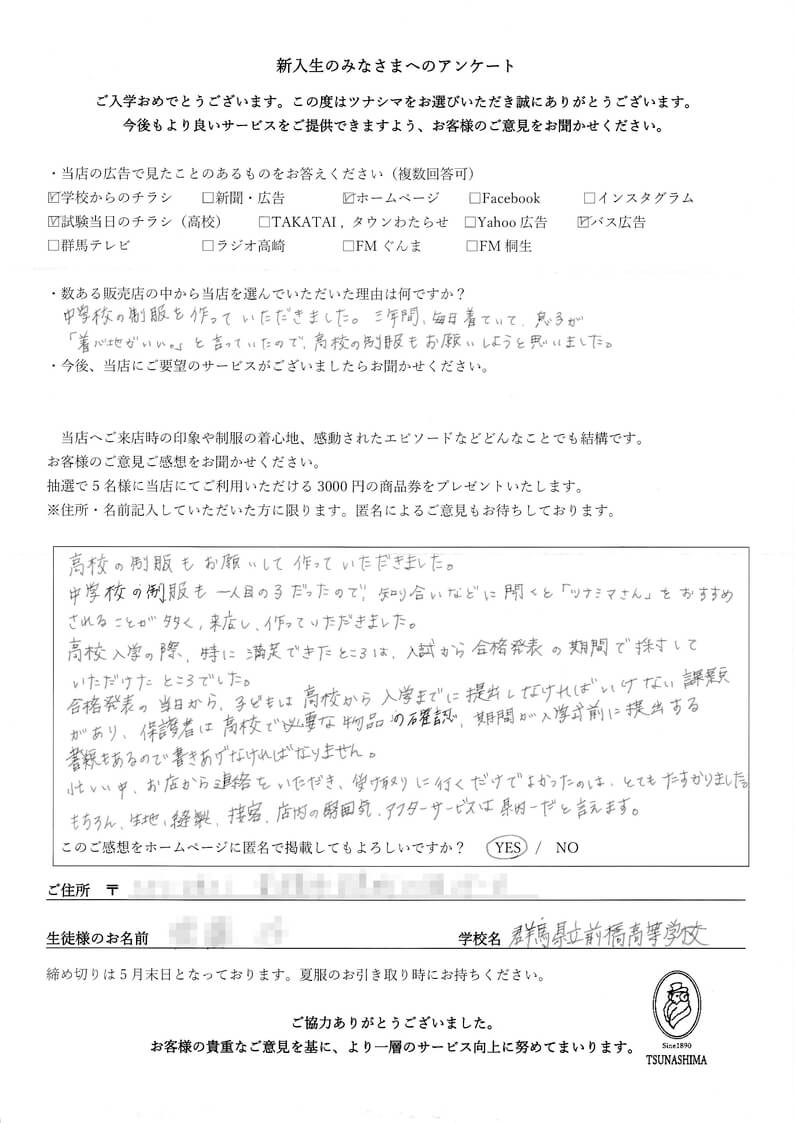 新入生のみなさまへのアンケート
ご入学おめでとうございます。この度はツナシマをお選びいただき誠にありがとうございます。
今後もより良いサービスをご提供できますよう、お客様のご意見をお聞かせください。
・当店の広告で見たことのあるものをお答えください（複数回答可）
☑学校からのチラシ □新聞・広告 ☑ホームページ □Facebook □インスタグラム
☑試験当日のチラシ（高校） □TAKATAI , タウンわたらせ □Yahoo 広告 ☑バス広告
□群馬テレビ □ラジオ高崎 □FM ぐんま □FM 桐生
・数ある販売店の中から当店を選んでいただいた理由は何ですか？
中学校の制服を作っていただきました。三年間、毎日着ていて、息子が
「着心地がいい。」と言っていたので、高校の制服もお願いしようと思いました。
・今後、当店にご要望のサービスがございましたらお聞かせください。
当店へご来店時の印象や制服の着心地、感動されたエピソードなどどんなことでも結構です。
お客様のご意見ご感想をお聞かせください。
抽選で 5 名様に当店にてご利用いただける 3000 円の商品券をプレゼントいたします。
※住所・名前記入していただいた方に限ります。匿名によるご意見もお待ちしております。
高校の制服もお願いして作っていただきました。
中学校の制服も一人目の子だったので、知り合いなどに聞くと「ツナシマさん」をおすすめ
されることが多く、来店し、作っていただきました。
高校入学の際、特に満足できたところは、入試から合格発表の期間で採寸して
いただけたところでした。
合格発表の当日から、子どもは高校から入学までに提出しなければいけない課題
があり、保護者は高校で必要な物品の確認、期間が入学式前に提出する
書類もあるので書きあげなければなりません。
忙しい中、お店から連絡をいただき、受け取りに行くだけでよかったのは、とてもたすかりました。
もちろん、生地、縫製、接客、店内の雰囲気、アフターサービスは県内一だと言えます。
このご感想をホームページに匿名で掲載してもよろしいですか？ YES / NO
ご住所 〒
生徒様のお名前 学校名 群馬県立前橋高等学校
締め切りは 5 月末日となっております。夏服のお引き取り時にお持ちください。
ご協力ありがとうございました。
お客様の貴重なご意見を基に、より一層のサービス向上に努めてまいります。
Sine1890
TSUNASHIMA